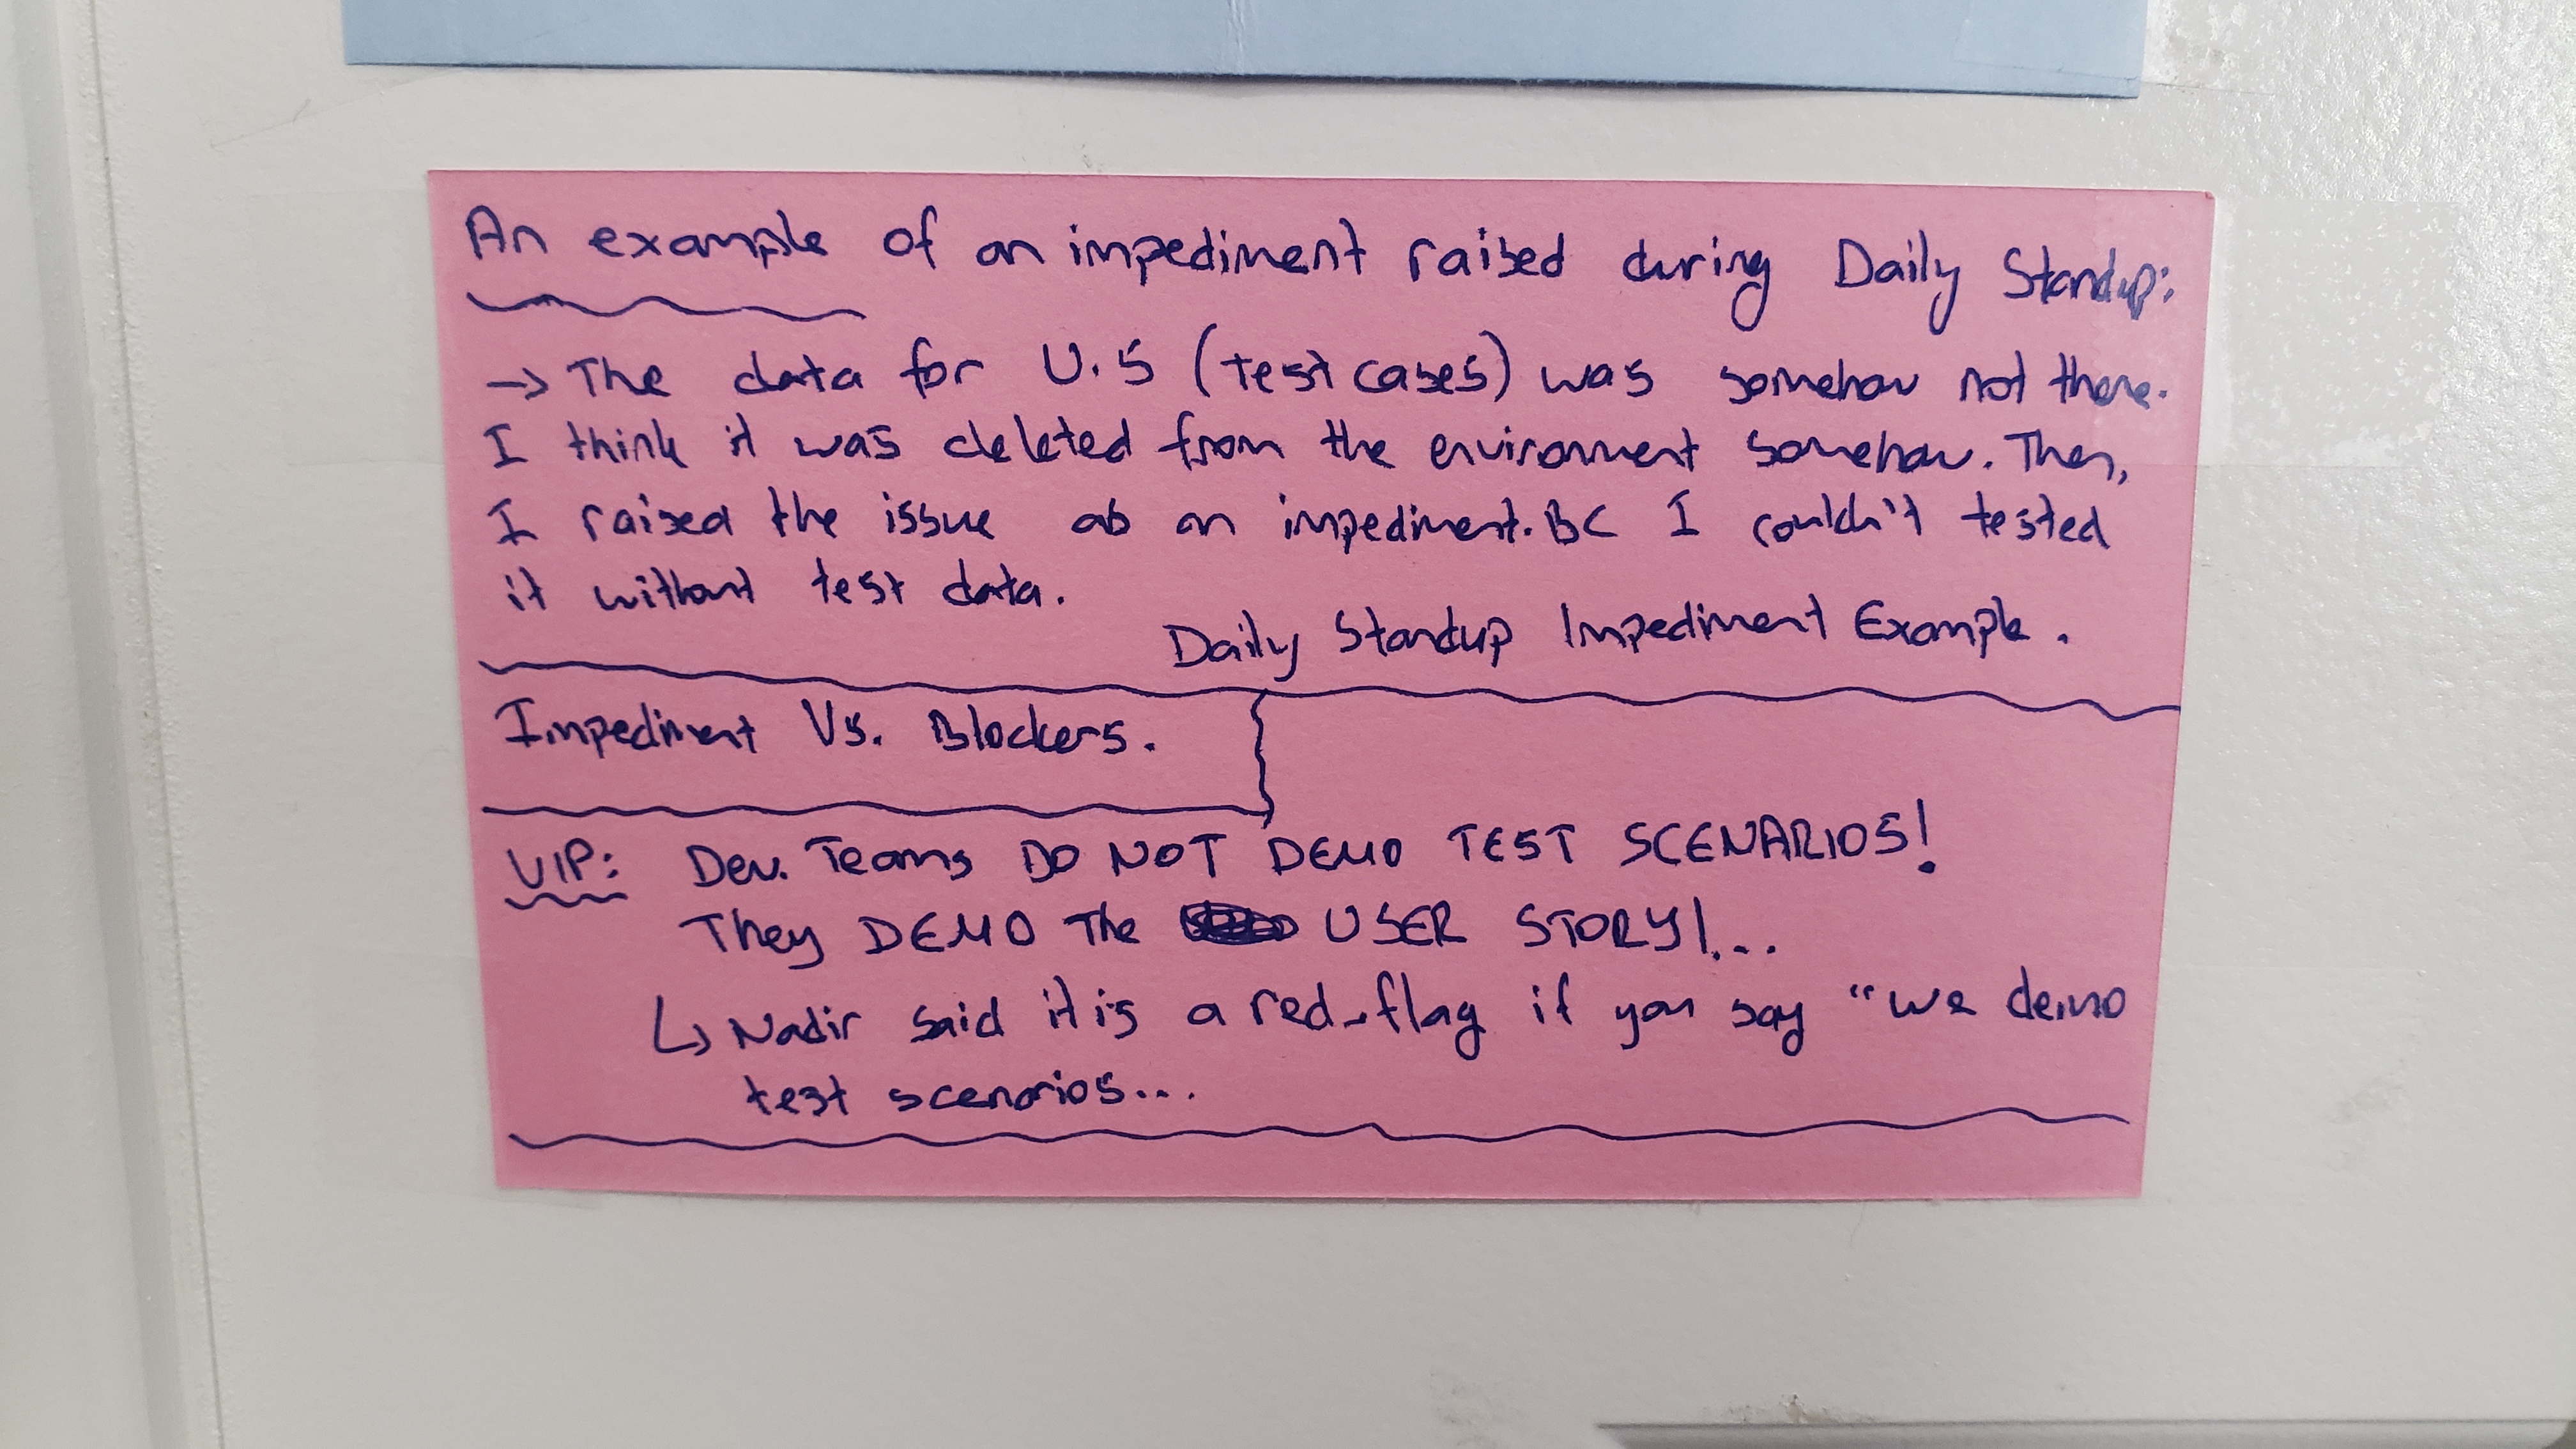 An example of an impediment raised during Daily Standup:
→ The data for U.S (test cases) was somehow not there.
I think it was deleted from the environment somehow. Then,
I raised the issue as an impediment. BC I couldn't tested
it without test data.
Daily Standup Impediment Example.
Impediment Vs. Blockers.
VIP: Dev. Teams DO NOT DEMO TEST SCENARIOS!
They DEMO The USER STORY!...
↳ Nadir said it is a red-flag if you say "we demo
test scenarios...